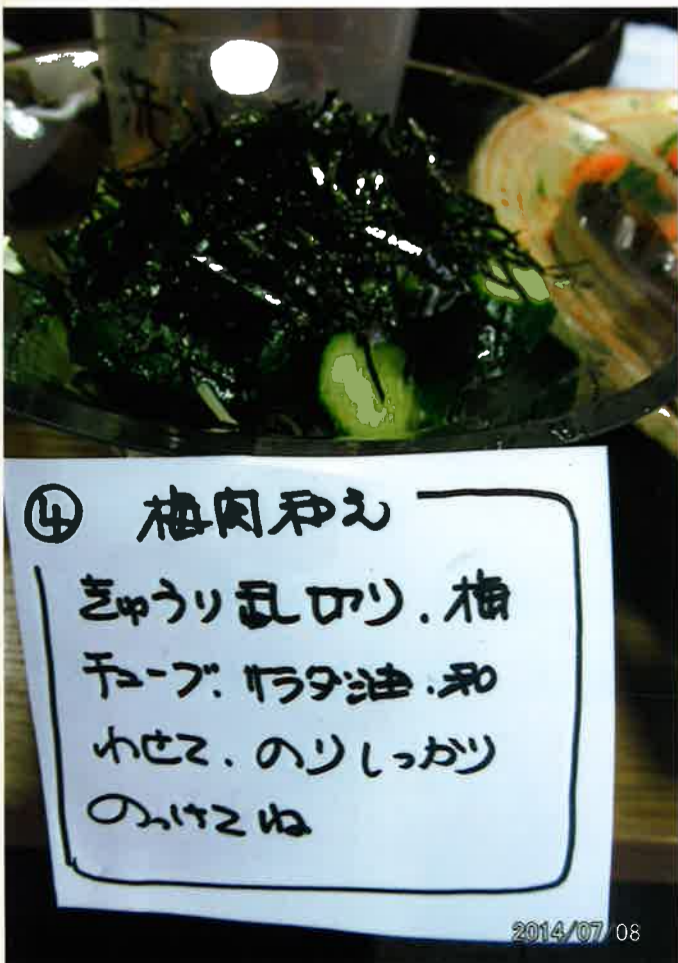 ④ 梅肉和え
きゅうり乱切り、梅
チューブ、サラダ油、和
わせて、のりしっかり
のっけてね
2014/07/08